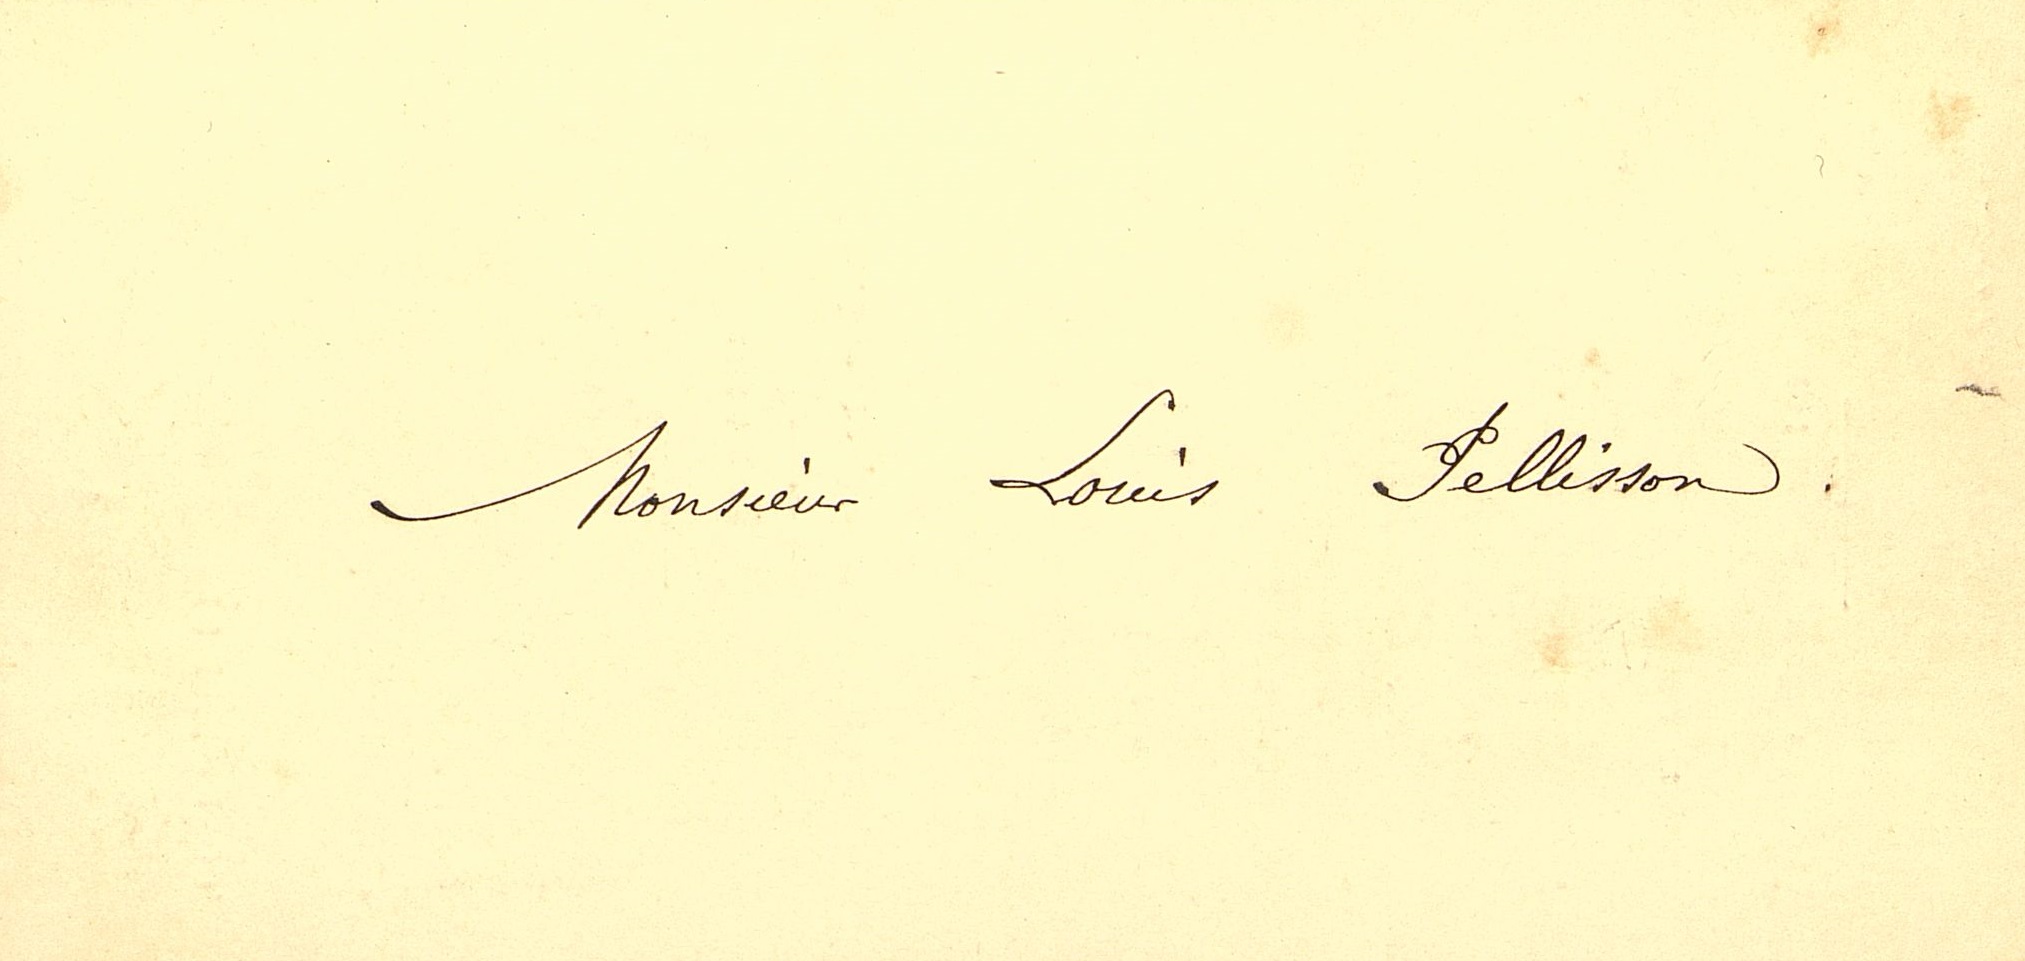 Monsieur Louis Pellisson.